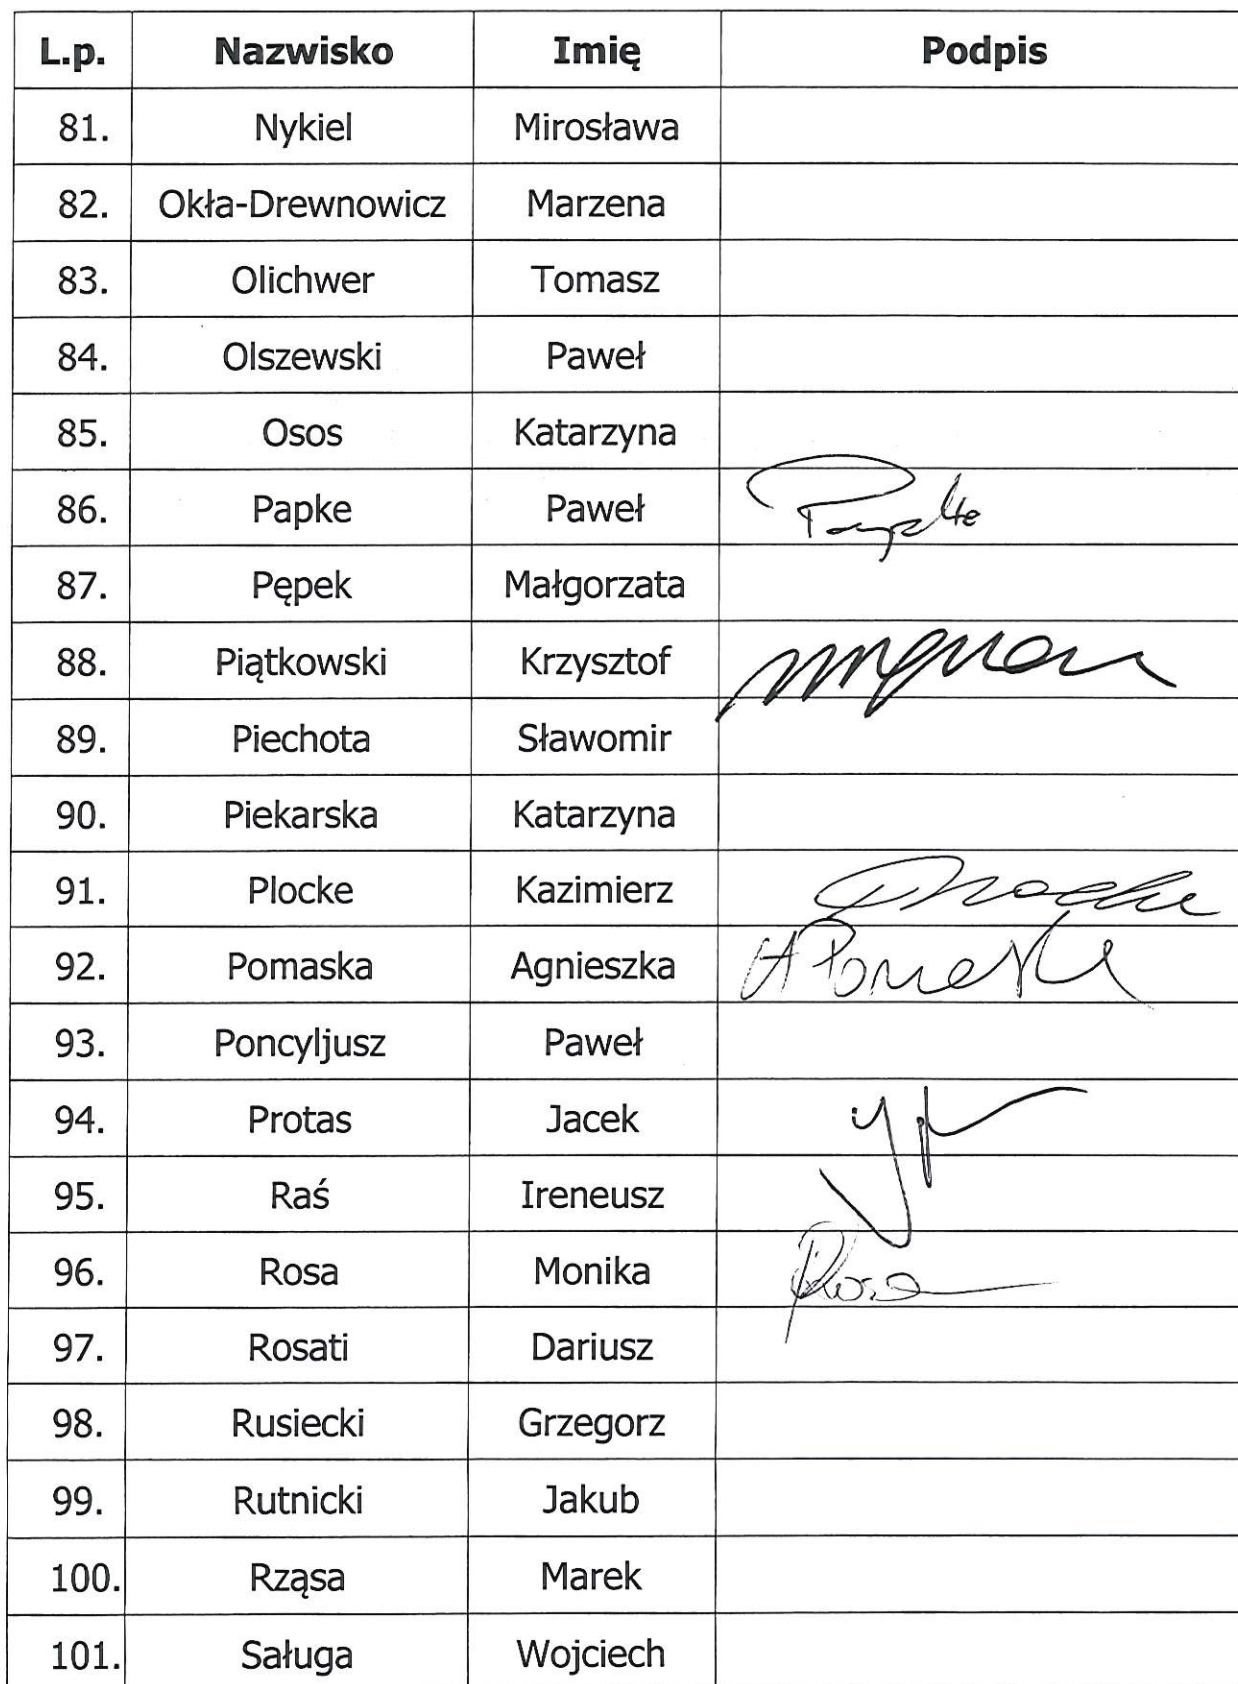 L.p. Nazwisko Imię Podpis
81. Nykiel Mirosława
82. Okła-Drewnowicz Marzena
83. Olichwer Tomasz
84. Olszewski Paweł
85. Osos Katarzyna
86. Papke Paweł Papke
87. Pępek Małgorzata
88. Piątkowski Krzysztof
89. Piechota Sławomir
90. Piekarska Katarzyna
91. Plocke Kazimierz Plocke
92. Pomaska Agnieszka A Pomaska
93. Poncyljusz Paweł
94. Protas Jacek
95. Raś Ireneusz
96. Rosa Monika Rosa
97. Rosati Dariusz
98. Rusiecki Grzegorz
99. Rutnicki Jakub
100. Rząsa Marek
101. Saługa Wojciech